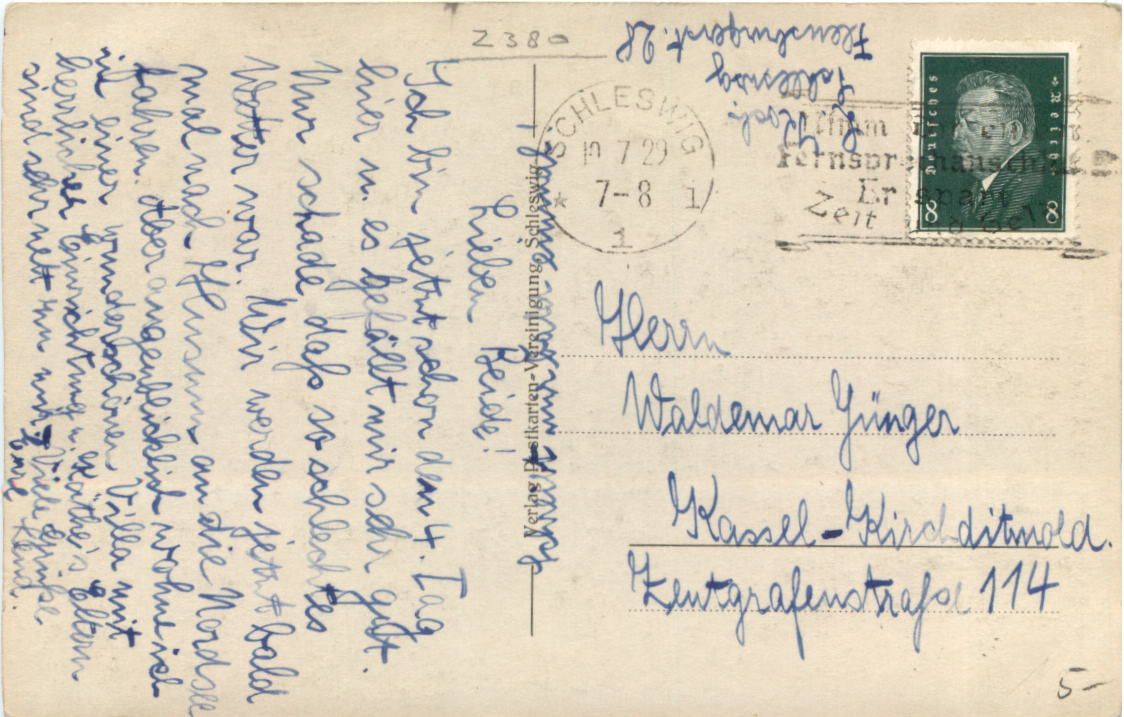 Z380
Flensburgerst. 28
Schleswig
SCHLESWIG
10 7 29
7-8
1
Wilhelm
Fernsprechanschluß
Erspart
Zeit und Geld
Deutsches Reich
8 8
Verlag Postkarten-Vereinigung, Schleswig
Lieben Beide!
Ich bin jetzt schon den 4. Tag
hier u. es gefällt mir sehr gut.
Nur schade, daß so schlechtes
Wetter war. Wir werden jetzt bald
mal nach Husum an die Nordsee
fahren. Aber augenblicklich wohne ich
in einer wunderschönen Villa mit
herrlicher Einrichtung u. Käthe's Eltern
sind sehr nett zu mir. Viele Grüße
Herrn
Waldemar Jünger
Kassel-Kirchditmold.
Zentgrafenstraße 114
5-